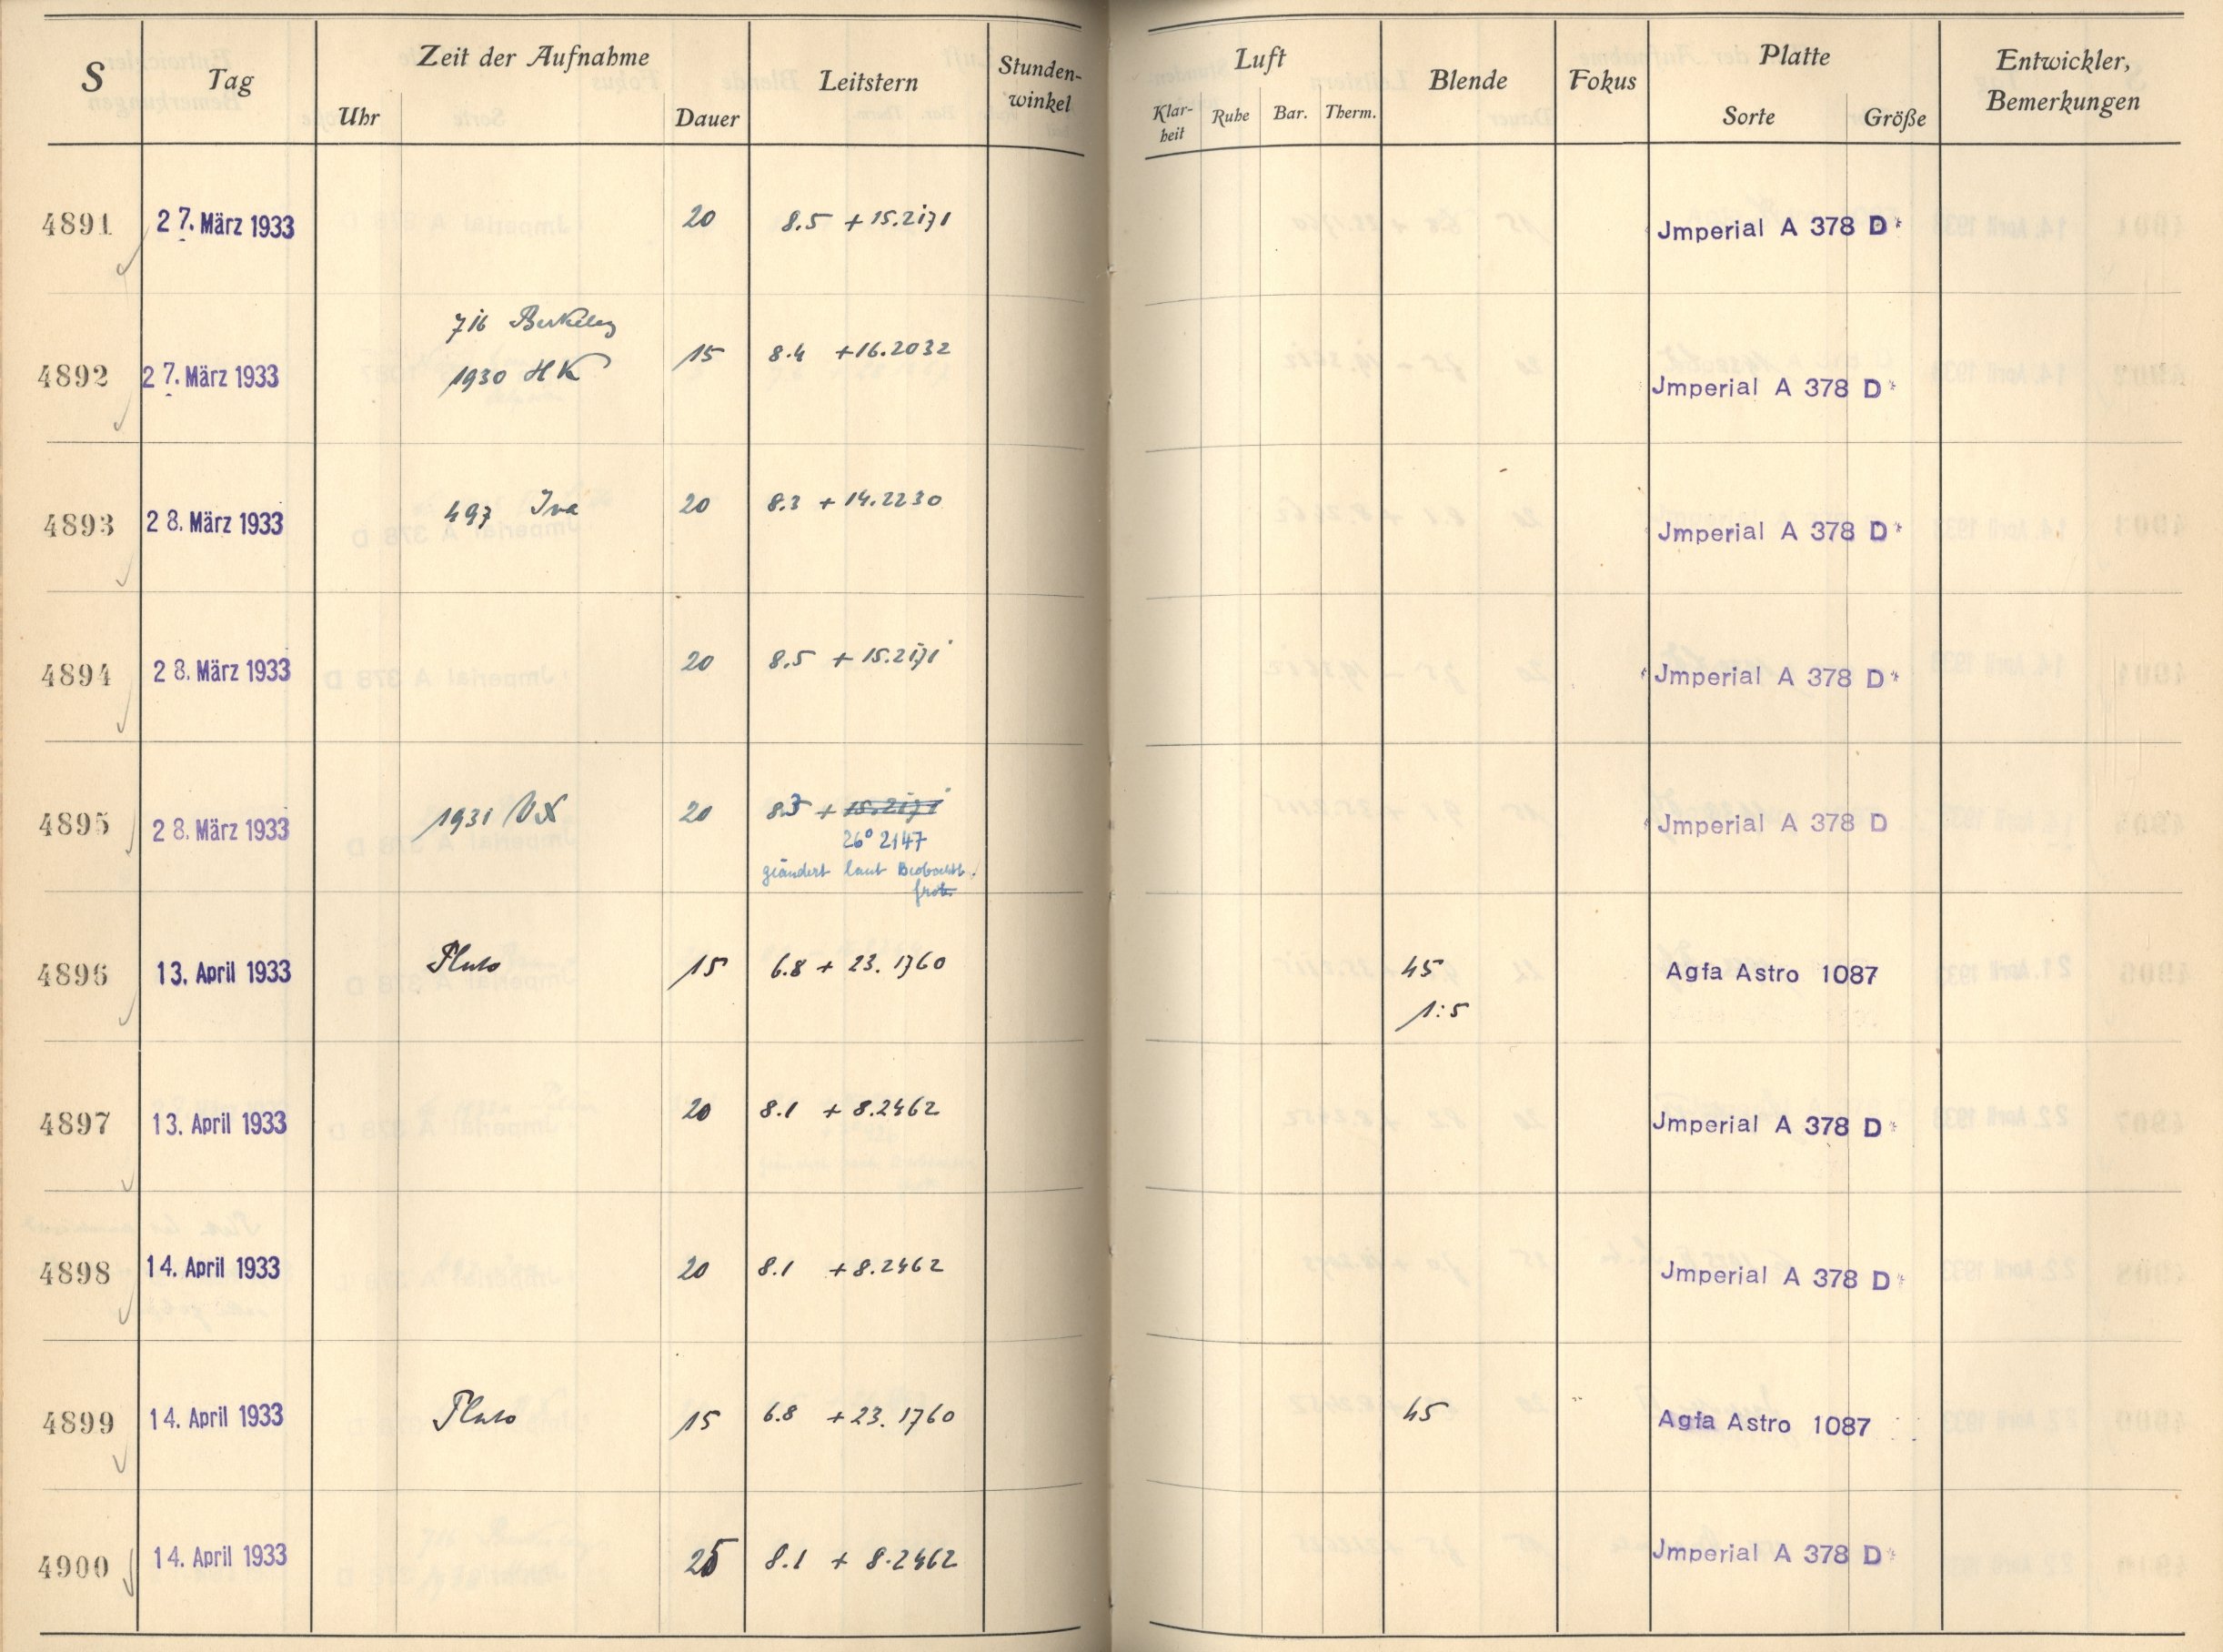 S Tag Zeit der Aufnahme Leitstern Stunden-
winkel Luft Blende Fokus Platte Entwickler,
Bemerkungen
Uhr Dauer Klar-
heit Ruhe Bar. Therm. Sorte Größe
4891 27. März 1933 20 8.5 +15.2171 Jmperial A 378 D
716 Berkeley
4892 27. März 1933 1930 HK 15 8.4 +16.2032 Jmperial A 378 D
4893 28. März 1933 497 Iva 20 8.3 +14.2230 Jmperial A 378 D
4894 28. März 1933 20 8.5 +15.2171 Jmperial A 378 D
4895 28. März 1933 1931 VX 20 8.3 + 15.2171 Jmperial A 378 D
26° 2147
geändert laut Beobachtb.
4896 13. April 1933 Pluto 15 6.8 + 23.1760 45 Agfa Astro 1087
1:5
4897 13. April 1933 20 8.1 + 8.2462 Jmperial A 378 D
4898 14. April 1933 20 8.1 +8.2462 Jmperial A 378 D
4899 14. April 1933 Pluto 15 6.8 +23.1760 45 Agfa Astro 1087
4900 14. April 1933 25 8.1 + 8.2462 Jmperial A 378 D